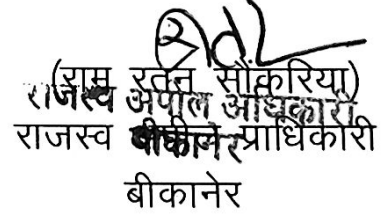 (राम रतन सौंकरिया)
राजस्व अपील अधिकारी
राजस्व प्राधिकारी
बीकानेर